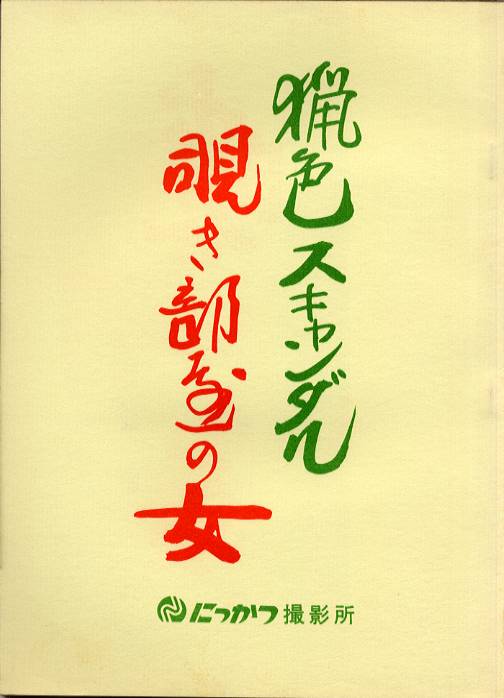 猟色スキャンダル
覗き部屋の女
にっかつ撮影所